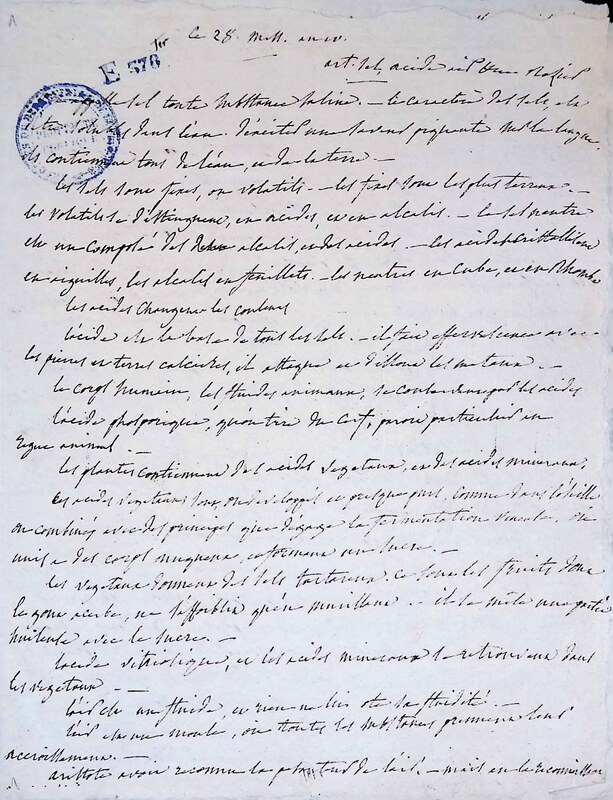 ce 28 mess. an
E 578 ter
art. sel, acide
sel toute substance saline. — le caractère des sels, est
dans l'eau. d'exciter une saveur piquante sur la langue.
ils contiennent tous de l'eau, et de la terre —
les sels sont fixes, ou volatils. — les fixes sont les plus terreux. —
les volatils se distinguent, en acides, et en alcalis. — le sel neutre
est un composé des alcalis, et des acides. — les acides cristallisent
en aiguilles, les alcalis en feuillets. les neutres en cube, et en Rhombe
les acides changent les couleurs
l'acide est la base de tous les sels. — il fait effervescence avec
les pierres et terres calcaires, il attaque et dissout les métaux. —
le corps humain, les fluides animaux, les acides
l'acide phosphorique, qu'on tire du cerf, paroit particulier au
règne animal. —
les plantes contiennent des acides végétaux, et des acides mineraux,
les acides végétaux sont, ou developpés et presque purs, comme dans l'oseille
ou combinés avec des principes que dégage la fermentation vineuse. ou
unis a des corps muqueux, et formant un sucre. —
les végétaux donnent des sels tartareux. ce sont les fruits dont
le gout acerbe, ne s'affoiblit qu'en murissant. — il se mêle une partie
huileuse avec le sucre. —
l'acide vitriolique, et les acides mineraux se retrouvent dans
les végétaux. —
l'air est un fluide, et rien ne lui ote sa fluidité. —
l'air est un moule, ou toutes les substances prennent leur
accroissement. —
aristote avoit reconnu la pesanteur de l'air. — mais en la reconnoissant